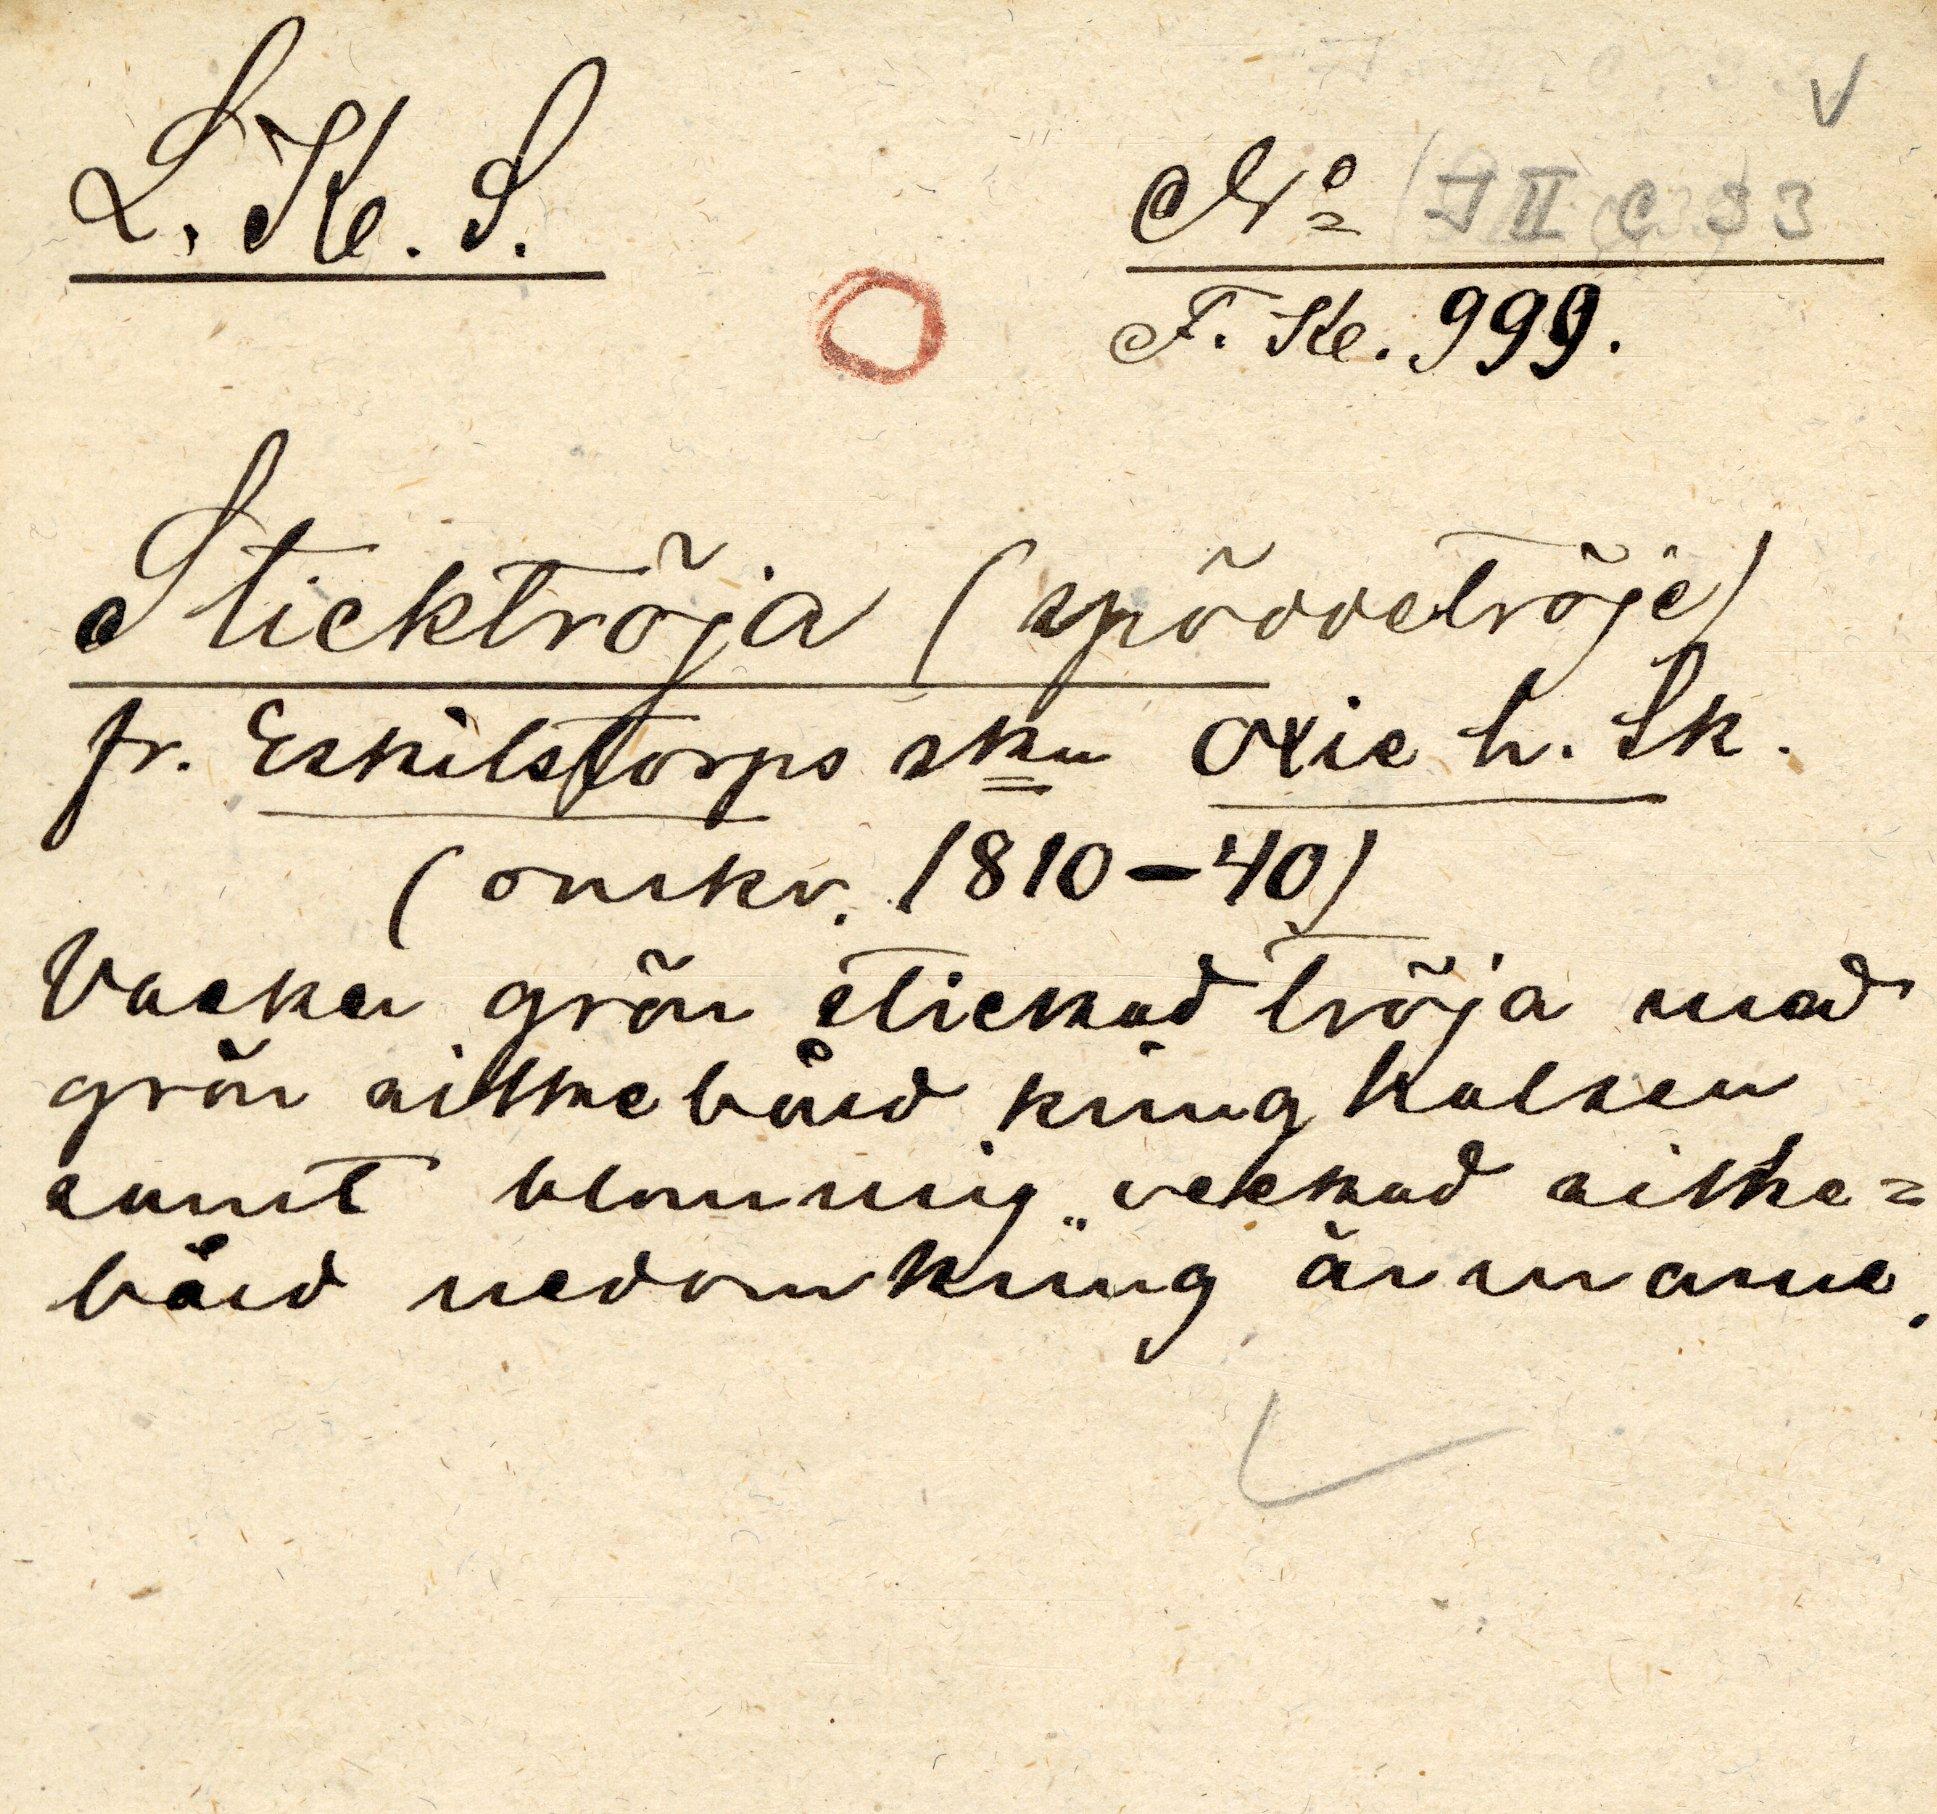 L. Kl. S.
Nº I II C 33
F. Kl. 999.
Sticktröja (spöddetröje)
fr. Eskilstorps skn Oxie h. Sk.
(omkr. 1810–40)
Vacker grön stickad tröja med
grön silkebånd kring halsen
samt blommig veckad silke=
bånd nedomkring ärmarne.